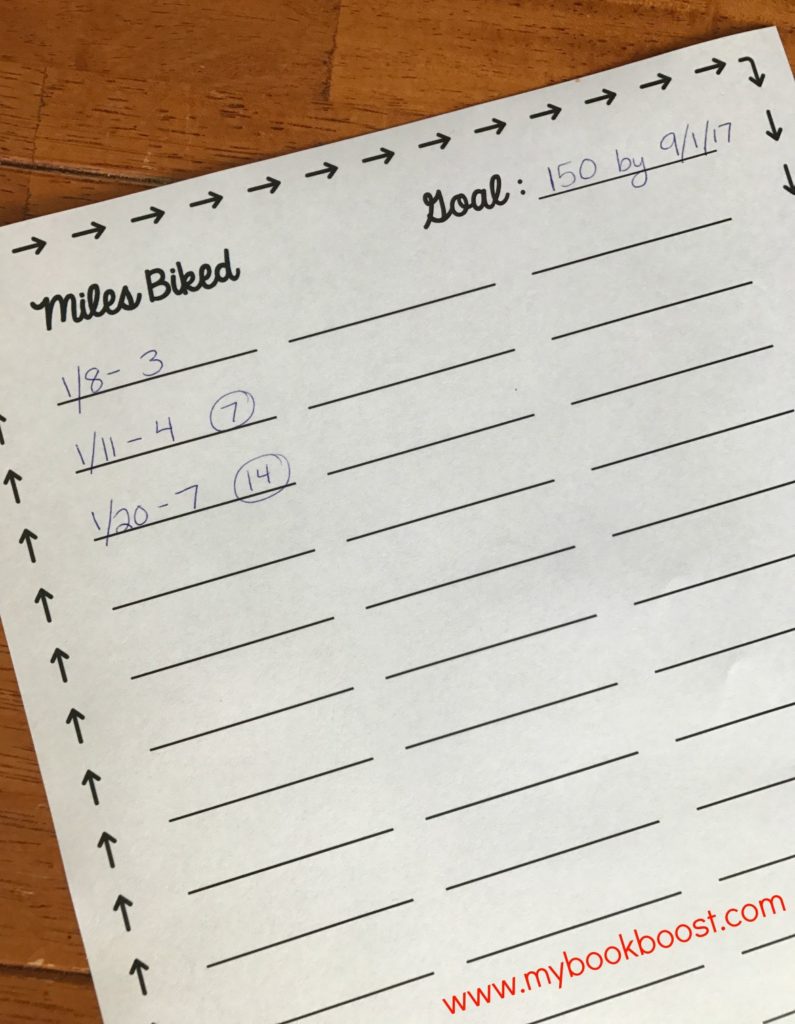 Goal: 150 by 9/1/17
Miles Biked
1/8 - 3
1/11 - 4 7
1/20 - 7 14
www.mybookboost.com